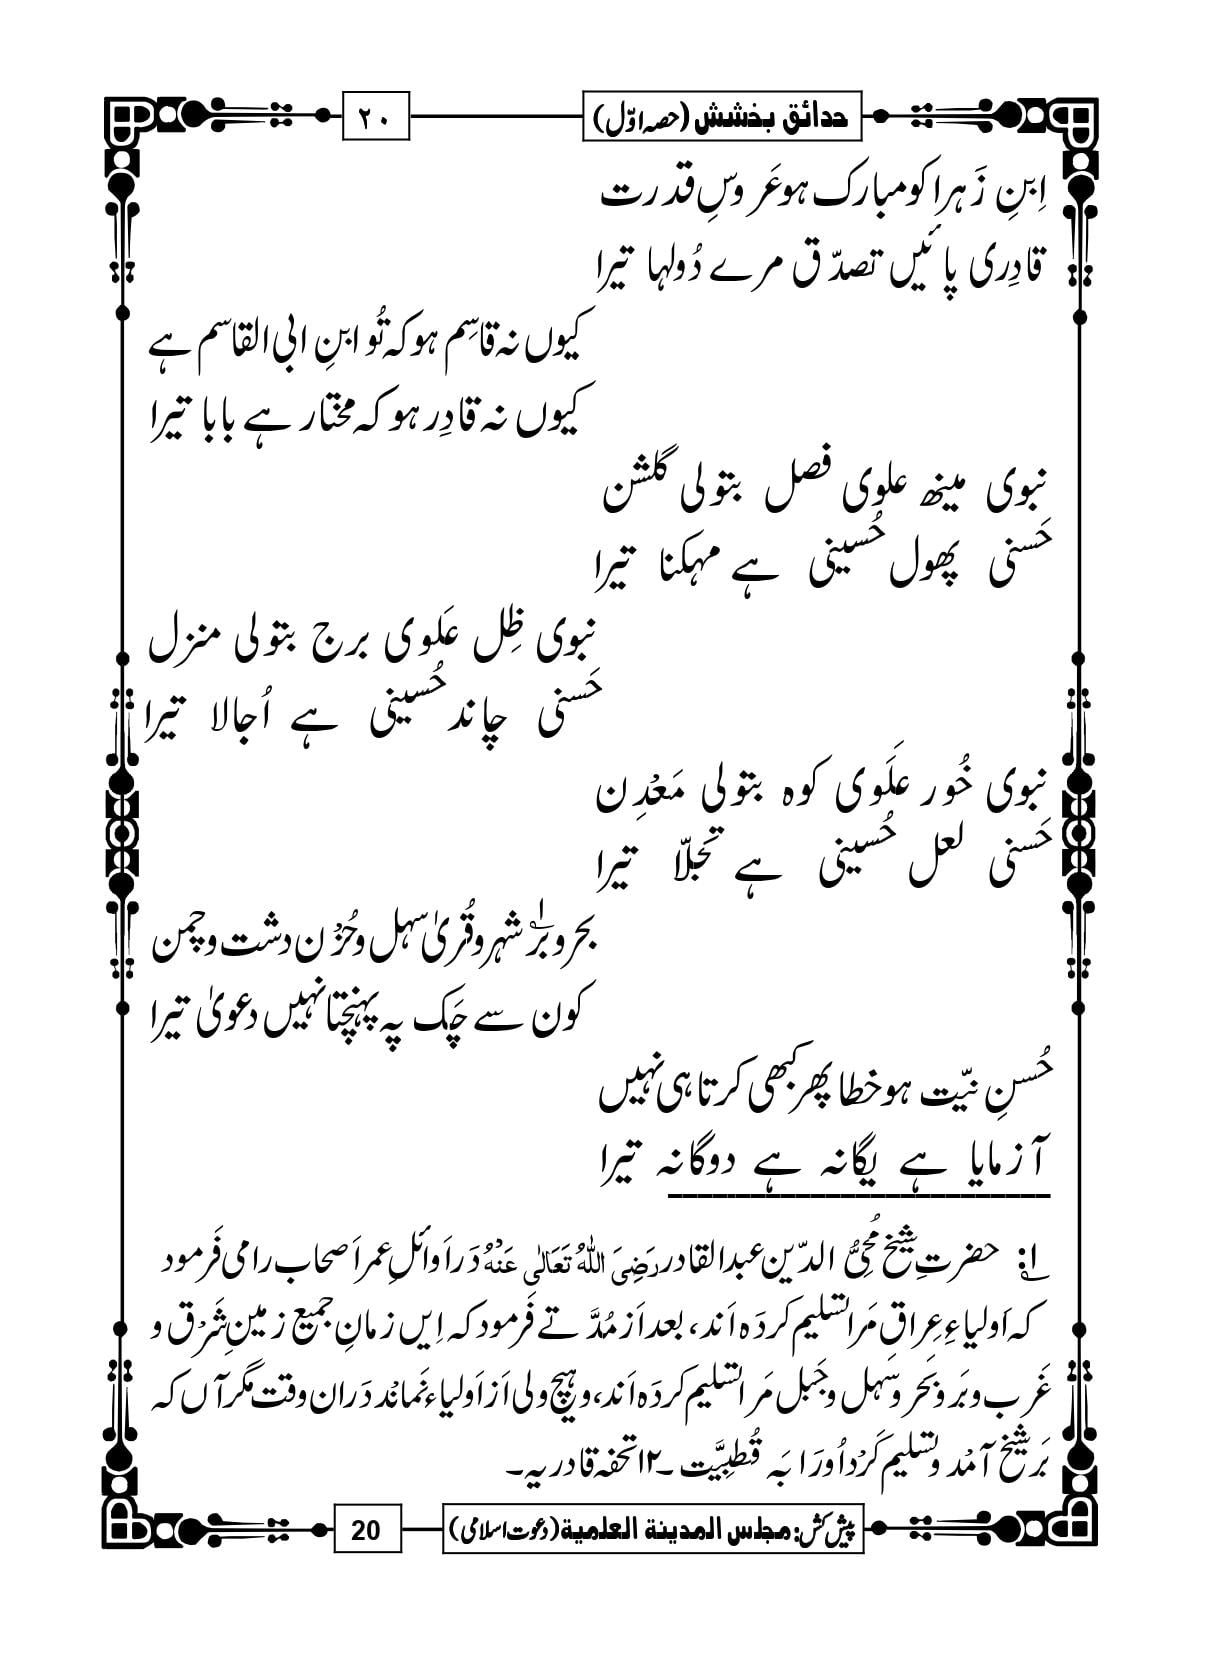 حدائق بخشش (حصہ اوّل)
۲۰
اِبنِ زَہرا کو مبارک ہو عَروسِ قدرت
قادِری پائیں تصدّق مرے دُولہا تیرا
کیوں نہ قاسِم ہو کہ تُو ابنِ ابی القاسم ہے
کیوں نہ قادِر ہو کہ مختار ہے بابا تیرا
نبوی مینھ علوی فصل بتولی گلشن
حَسنی پھول حُسینی ہے مہکنا تیرا
نبوی ظِل عَلوی برج بتولی منزل
حَسنی چاند حُسینی ہے اُجالا تیرا
نبوی خُور عَلَوی کوہ بتولی مَعْدِن
حَسنی لعل حُسینی ہے تجلّا تیرا
بحر و بَر۱؎ شہر و قُریٰ سہل و حُزْن دشت و چمن
کون سے چَک پہ پہنچتا نہیں دعویٰ تیرا
حُسنِ نیّت ہو خطا پھر کبھی کرتا ہی نہیں
آزمایا ہے یگانہ ہے دوگانہ تیرا
۱؎: حضرتِ شیخ مُحیُّ الدّین عبدالقادر رَضِیَ اللّٰہُ تَعَالٰی عَنْہُ دَر اَوائلِ عمر اَصحاب را می فَرمود
کہ اَولیاءِ عِراق مَرا تسلیم کردَہ اَند، بعد اَز مُدَّتے فَرمود کہ اِیں زمانِ جمیع زمینِ شَرْق و
غَرب و بَر و بَحْر و سَہل و جَبل مَرا تسلیم کردَہ اَند، و ہیچ ولی اَز اَولیاء نَمانْد دَر ان وقت مگر آں کہ
بَر شیخ آمْد و تسلیم کَرْد اُو رَا بَہ قُطبِیَّت ۔۱۲ تحفہ قادریہ۔
پیش کش: مجلس المدینة العلمیة (دعوت اسلامی)
20